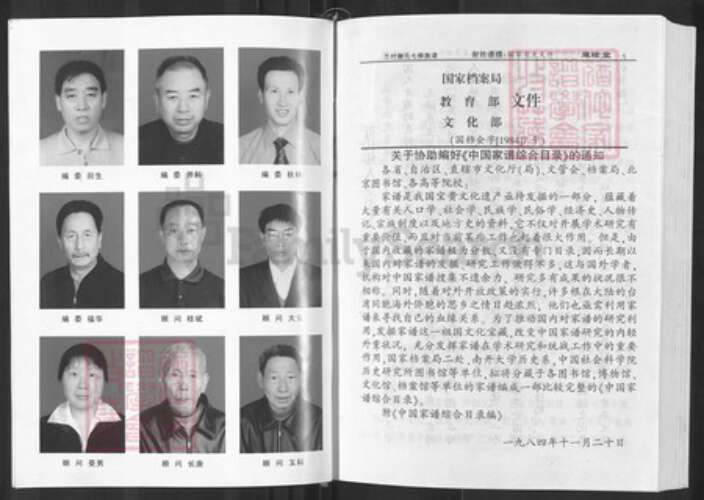 编 委 田生
编 委
编 委
编 委 福华
顾 问 桂斌
顾 问
顾 问
顾 问 长庚
顾 问 玉科
国家档案局
教 育 部 文件
文 化 部
关于协助编好《中国家谱综合目录》的通知
各省、自治区、直辖市文化厅(局)、文管会、档案局、北
京图书馆、各高等院校:
家谱是我国宝贵文化遗产亟待发掘的一部分, 蕴藏着
大量有关人口学、社会学、民族学、民俗学、经济史、人物传
记、宗族制度以及地方史的资料, 它不仅对开展学术研究有
重要价值, 而且对当前某些工作也起着很大作用。但是, 由
于国内收藏的家谱极为分散, 又没有专门目录, 因而长期以
来国内对家谱的发掘、研究工作做得不多, 这与国外学者、
机构对中国家谱搜集不遗余力、研究多有成果的状况很不
相称。同时, 随着对外开放政策的实行, 许多根在大陆的台
湾同胞海外侨胞的思乡之情日趋浓烈, 他们也亟需利用家
谱来寻找自己的血缘关系。为了推动国内对家谱的研究利
用, 发掘家谱这一祖国文化宝藏, 改变中国家谱研究的内轻
外重状况, 充分发挥家谱在学术研究和统战工作中的重要
作用, 国家档案局二处、南开大学历史系、中国社会科学院
历史研究所图书馆等单位, 拟将分藏于各图书馆、博物馆、
文化馆、档案馆等单位的家谱编成一部比较完整的《中国家
谱综合目录》。
附《中国家谱综合目录编》
一九八四年十一月二十日